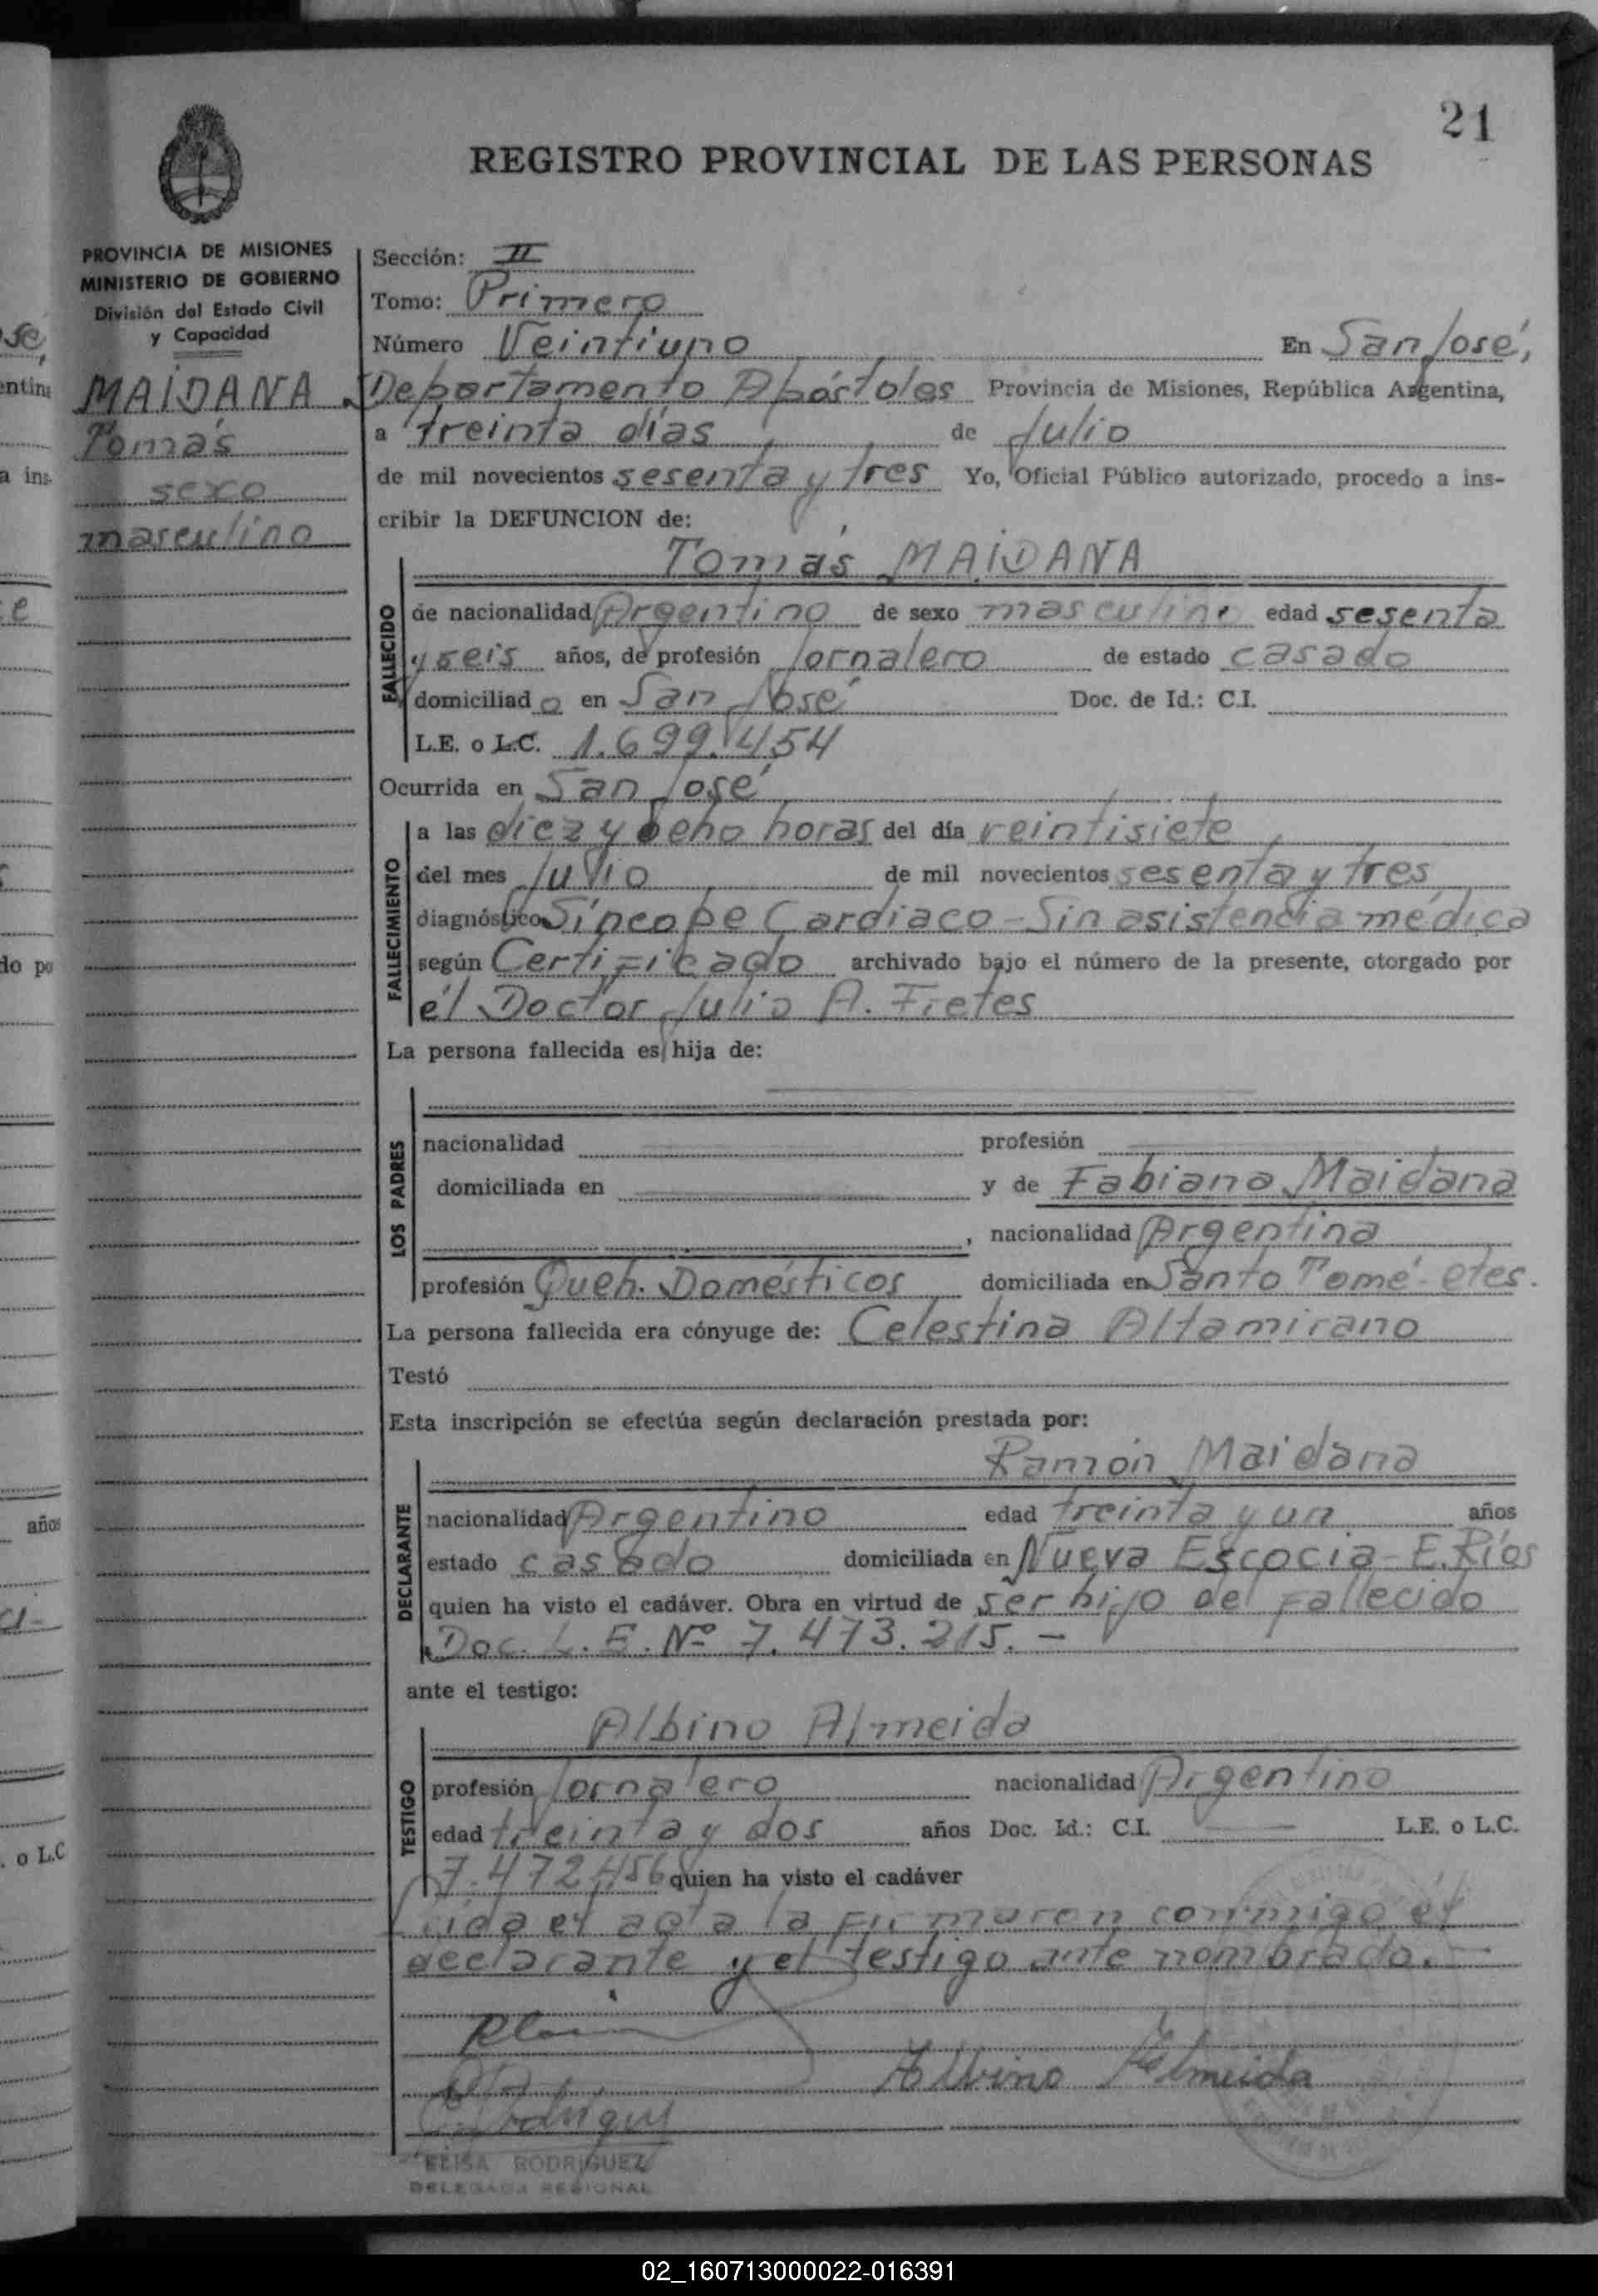 21
REGISTRO PROVINCIAL DE LAS PERSONAS
PROVINCIA DE MISIONES
MINISTERIO DE GOBIERNO
División del Estado Civil
y Capacidad
MAIDANA
Tomás
sexo
masculino
Sección: II
Tomo: Primero
Número Veintiuno En San José,
Departamento Apóstoles Provincia de Misiones, República Argentina,
a treinta días de Julio
de mil novecientos sesenta y tres Yo, Oficial Público autorizado, procedo a ins-
cribir la DEFUNCION de:
Tomás MAIDANA
FALLECIDO
de nacionalidad Argentino de sexo masculino edad sesenta
y seis años, de profesión Jornalero de estado casado
domiciliado en San José Doc. de Id.: C.I.
L.E. o L.C. 1.699.454
Ocurrida en San José
FALLECIMIENTO
a las diez y ocho horas del día veintisiete
del mes Julio de mil novecientos sesenta y tres
diagnóstico Síncope Cardiaco - Sin asistencia médica
según Certificado archivado bajo el número de la presente, otorgado por
él Doctor Julio A. Fretes
La persona fallecida es hija de:
LOS PADRES
nacionalidad profesión
domiciliada en y de Fabiana Maidana
, nacionalidad Argentina
profesión Queh. Domésticos domiciliada en Santo Tomé - ctes.
La persona fallecida era cónyuge de: Celestina Altamirano
Testó
Esta inscripción se efectúa según declaración prestada por:
Ramón Maidana
DECLARANTE
nacionalidad Argentino edad treinta y un años
estado casado domiciliada en Nueva Escocia - E. Ríos
quien ha visto el cadáver. Obra en virtud de ser hijo del fallecido
Doc. L. E. Nº 7.473.215. -
ante el testigo:
Albino Almeida
TESTIGO
profesión Jornalero nacionalidad Argentino
edad treinta y dos años Doc. Id.: C.I. — L.E. o L.C.
7.472.456 quien ha visto el cadáver
el acta la firmaron conmigo el
declarante y el testigo ante nombrado. -
Albino Almeida
ELISA RODRIGUEZ
DELEGADA REGIONAL
entina
a ins-
años
o L.C
02_160713000022-016391